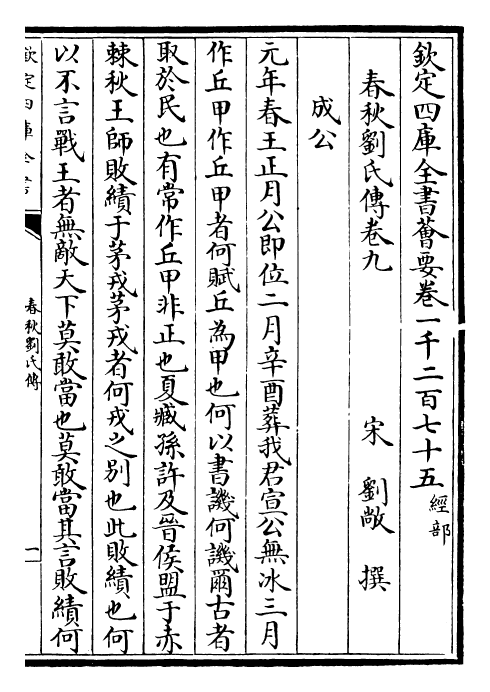 欽定四庫全書薈要卷一千二百七十五 經部
春秋劉氏傳卷九
宋 劉敞 撰
成公
元年春王正月公即位二月辛酉葬我君宣公無冰三月
作丘甲作丘甲者何賦丘為甲也何以書譏何譏爾古者
取於民也有常作丘甲非正也夏臧孫許及晉侯盟于赤
棘秋王師敗績于茅戎茅戎者何戎之别也此敗績也何
以不言戰王者無敵天下莫敢當也莫敢當其言敗績何
欽定四庫全書
春秋劉氏傳
一